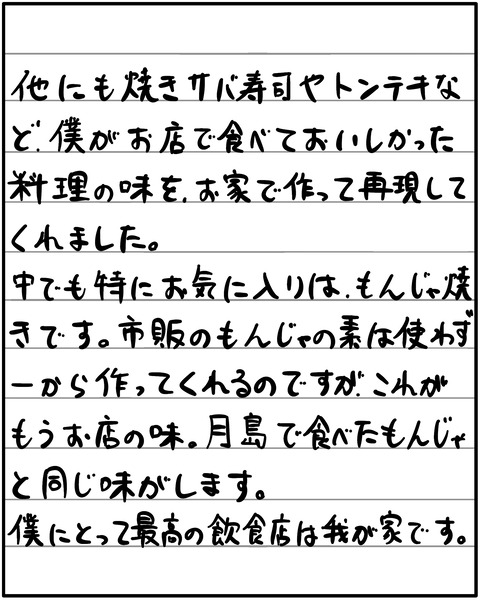 他にも焼きサバ寿司やトンテキな
ど、僕がお店で食べておいしかった
料理の味を、お家で作って再現して
くれました。
中でも特にお気に入りは、もんじゃ焼
きです。市販のもんじゃの素は使わず
一から作ってくれるのですが、これが
もうお店の味。月島で食べたもんじゃ
と同じ味がします。
僕にとって最高の飲食店は我が家です。